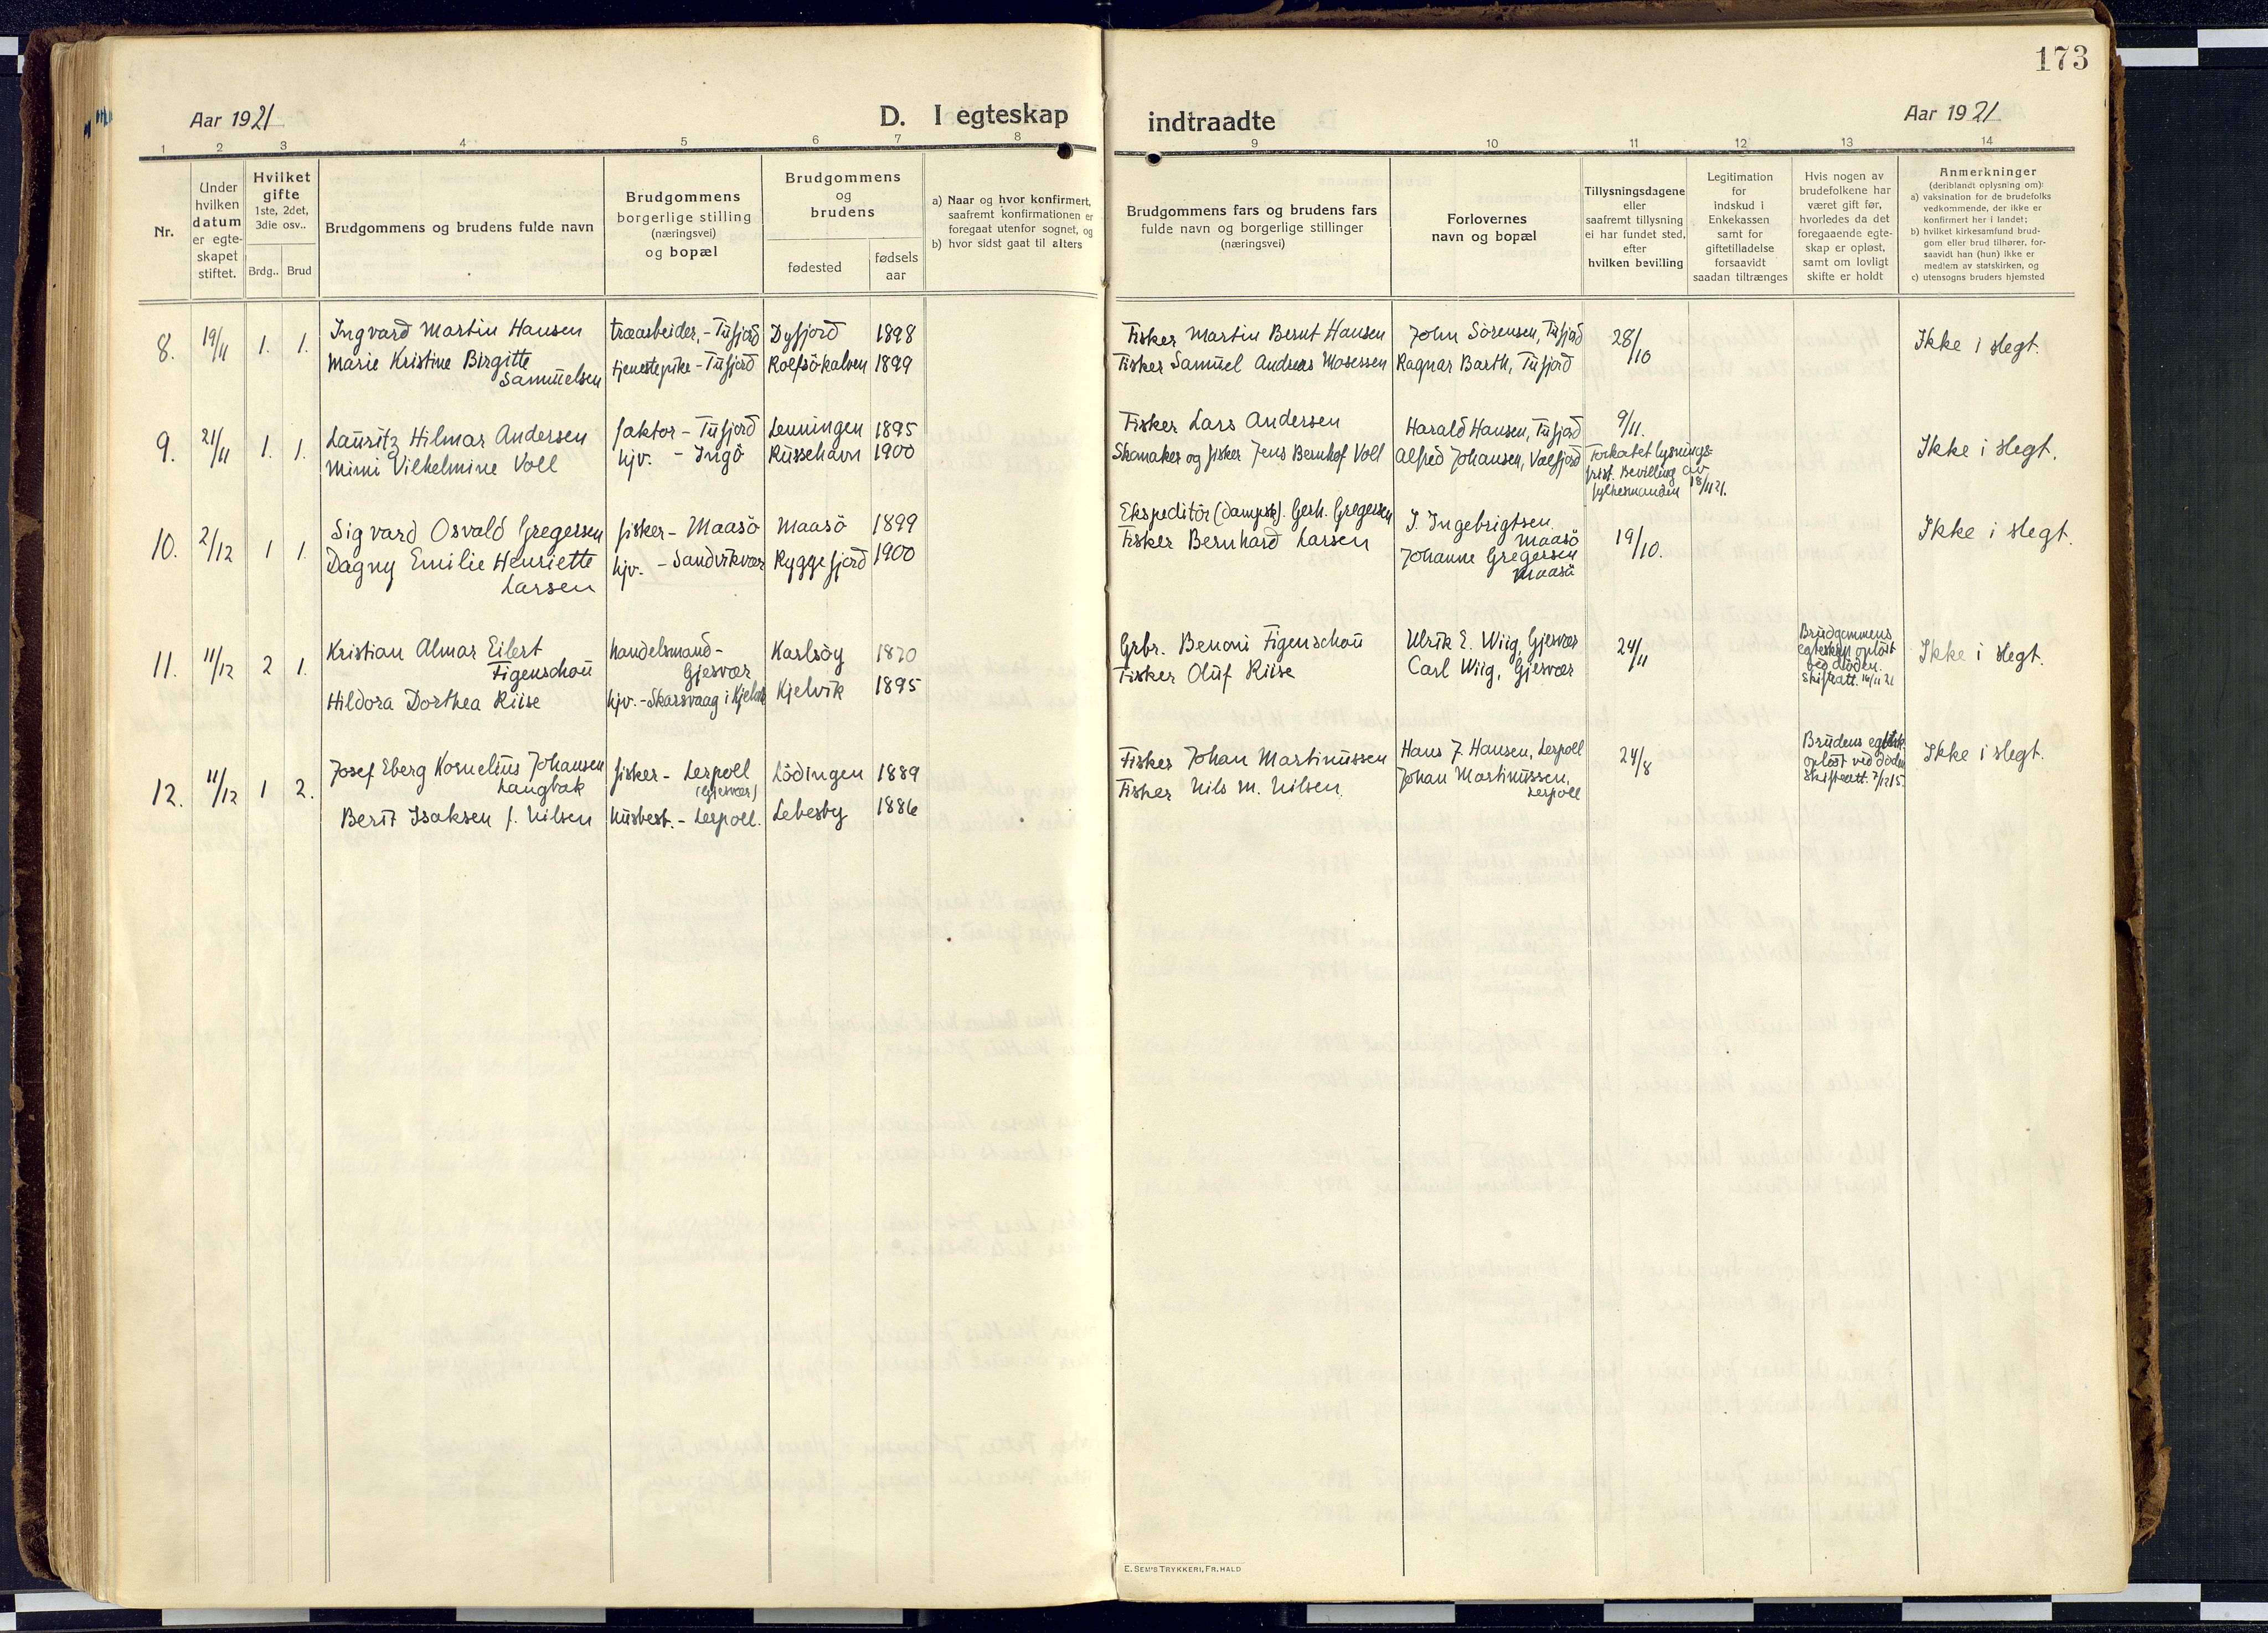 173
Aar 1921
D. I egteskap
indtraadte
Aar 1921
1 2 3 4 5 6 7 8 9 10 11 12 13 14
Nr.
Under
hvilken
datum
er egte-
skapet
stiftet.
Hvilket
gifte
1ste, 2det,
3die osv..
Brdg..
Brud
Brudgommens og brudens fulde navn
Brudgommens
borgerlige stilling
(næringsvei)
og bopæl
Brudgommens
og
brudens
fødested
fødsels
aar
a) Naar og hvor konfirmert,
saafremt konfirmationen er
foregaat utenfor sognet, og
b) hvor sidst gaat til alters
Brudgommens fars og brudens fars
fulde navn og borgerlige stillinger
(næringsvei)
Forlovernes
navn og bopæl
Tillysningsdagene
eller
saafremt tillysning
ei har fundet sted,
efter
hvilken bevilling
Legitimation
for
indskud i
Enkekassen
samt for
giftetilladelse
forsaavidt
saadan tiltrænges
Hvis nogen av
brudefolkene har
været gift før,
hvorledes da det
foregaaende egte-
skap er opløst,
samt om lovligt
skifte er holdt
Anmerkninger
(deriblandt oplysning om):
a) vaksination for de brudefolks
vedkommende, der ikke er
konfirmert her i landet;
b) hvilket kirkesamfund brud-
gom eller brud tilhører, for-
saavidt han (hun) ikke er
medlem av statskirken, og
c) utensogns bruders hjemsted
8. 19/11 1. 1.
Ingvard Martin Hansen
Marie Kristine Birgitte
Samuelsen
træarbeider, - Tufjord
tjenestepike - Tufjord
Dyfjord 1898
Rolfsökalven 1899
Fisker Martin Bernt Hansen
Fisker Samuel Andreas Mosessen
John Sörensen, Tufjord
Ragnar Barth, Tufjord
28/10
Ikke i slegt.
9. 21/11 1. 1.
Lauritz Hilmar Andersen
Mimi Vilhelmine Voll
faktor - Tufjord
hjv. - Ingö
Lenningen 1895
Russehavn 1900
Fisker Lars Andersen
Skomaker og fisker Jens Bernhof Voll
Harald Hansen, Tufjord
Alfred Johansen, Valfjord
9/11.
Forkortet lysnings-
frist. Bevilling av
fylkesmanden 18/11 21.
Ikke i slegt.
10. 2/12 1 1.
Sigvard Osvald Gregersen
Dagny Emilie Henriette
Larsen
fisker - Maasö
hjv. - Sandvikvær
Maasö 1899
Ryggefjord 1900
Ekspeditör (dampsk). Gerh. Gregersen
Fisker Bernhard Larsen
J. Ingebrigtsen
Maasö
Johanne Gregersen
Maasö
19/10.
Ikke i slegt.
11. 11/12 2 1.
Kristian Almar Eilert
Figenschou
Hildora Dorthea Riise
handelsmand -
Gjesvær
hjv. - Skarsvaag i Kjelvik
Karlsöy 1870
Kjelvik 1895
Grbr. Benoni Figenschou
Fisker Oluf Riise
Ulrik E. Wiig, Gjesvær
Carl Wiig, Gjesvær
24/11
Brudgommens
egteskap oplöst
ved döden.
Skifteatt. 16/11 21
Ikke i slegt.
12. 11/12 1 2.
Josef Eberg Kornelius Johansen
Langbak
Berit Isaksen f. Nilsen
fisker - Lerpoll
(Gjesvær)
husbest. - Lerpoll.
Lödingen 1889
Lebesby 1886
Fisker Johan Martinussen
Fisker Nils M. Nilsen
Hans J. Hansen, Lerpoll
Johan Martinussen,
Lerpoll
24/8
Brudens egtesk.
oplöst ved döden
Skifteatt. 7/12 15.
Ikke i slegt.
E. SEM'S TRYKKERI, FR.HALD